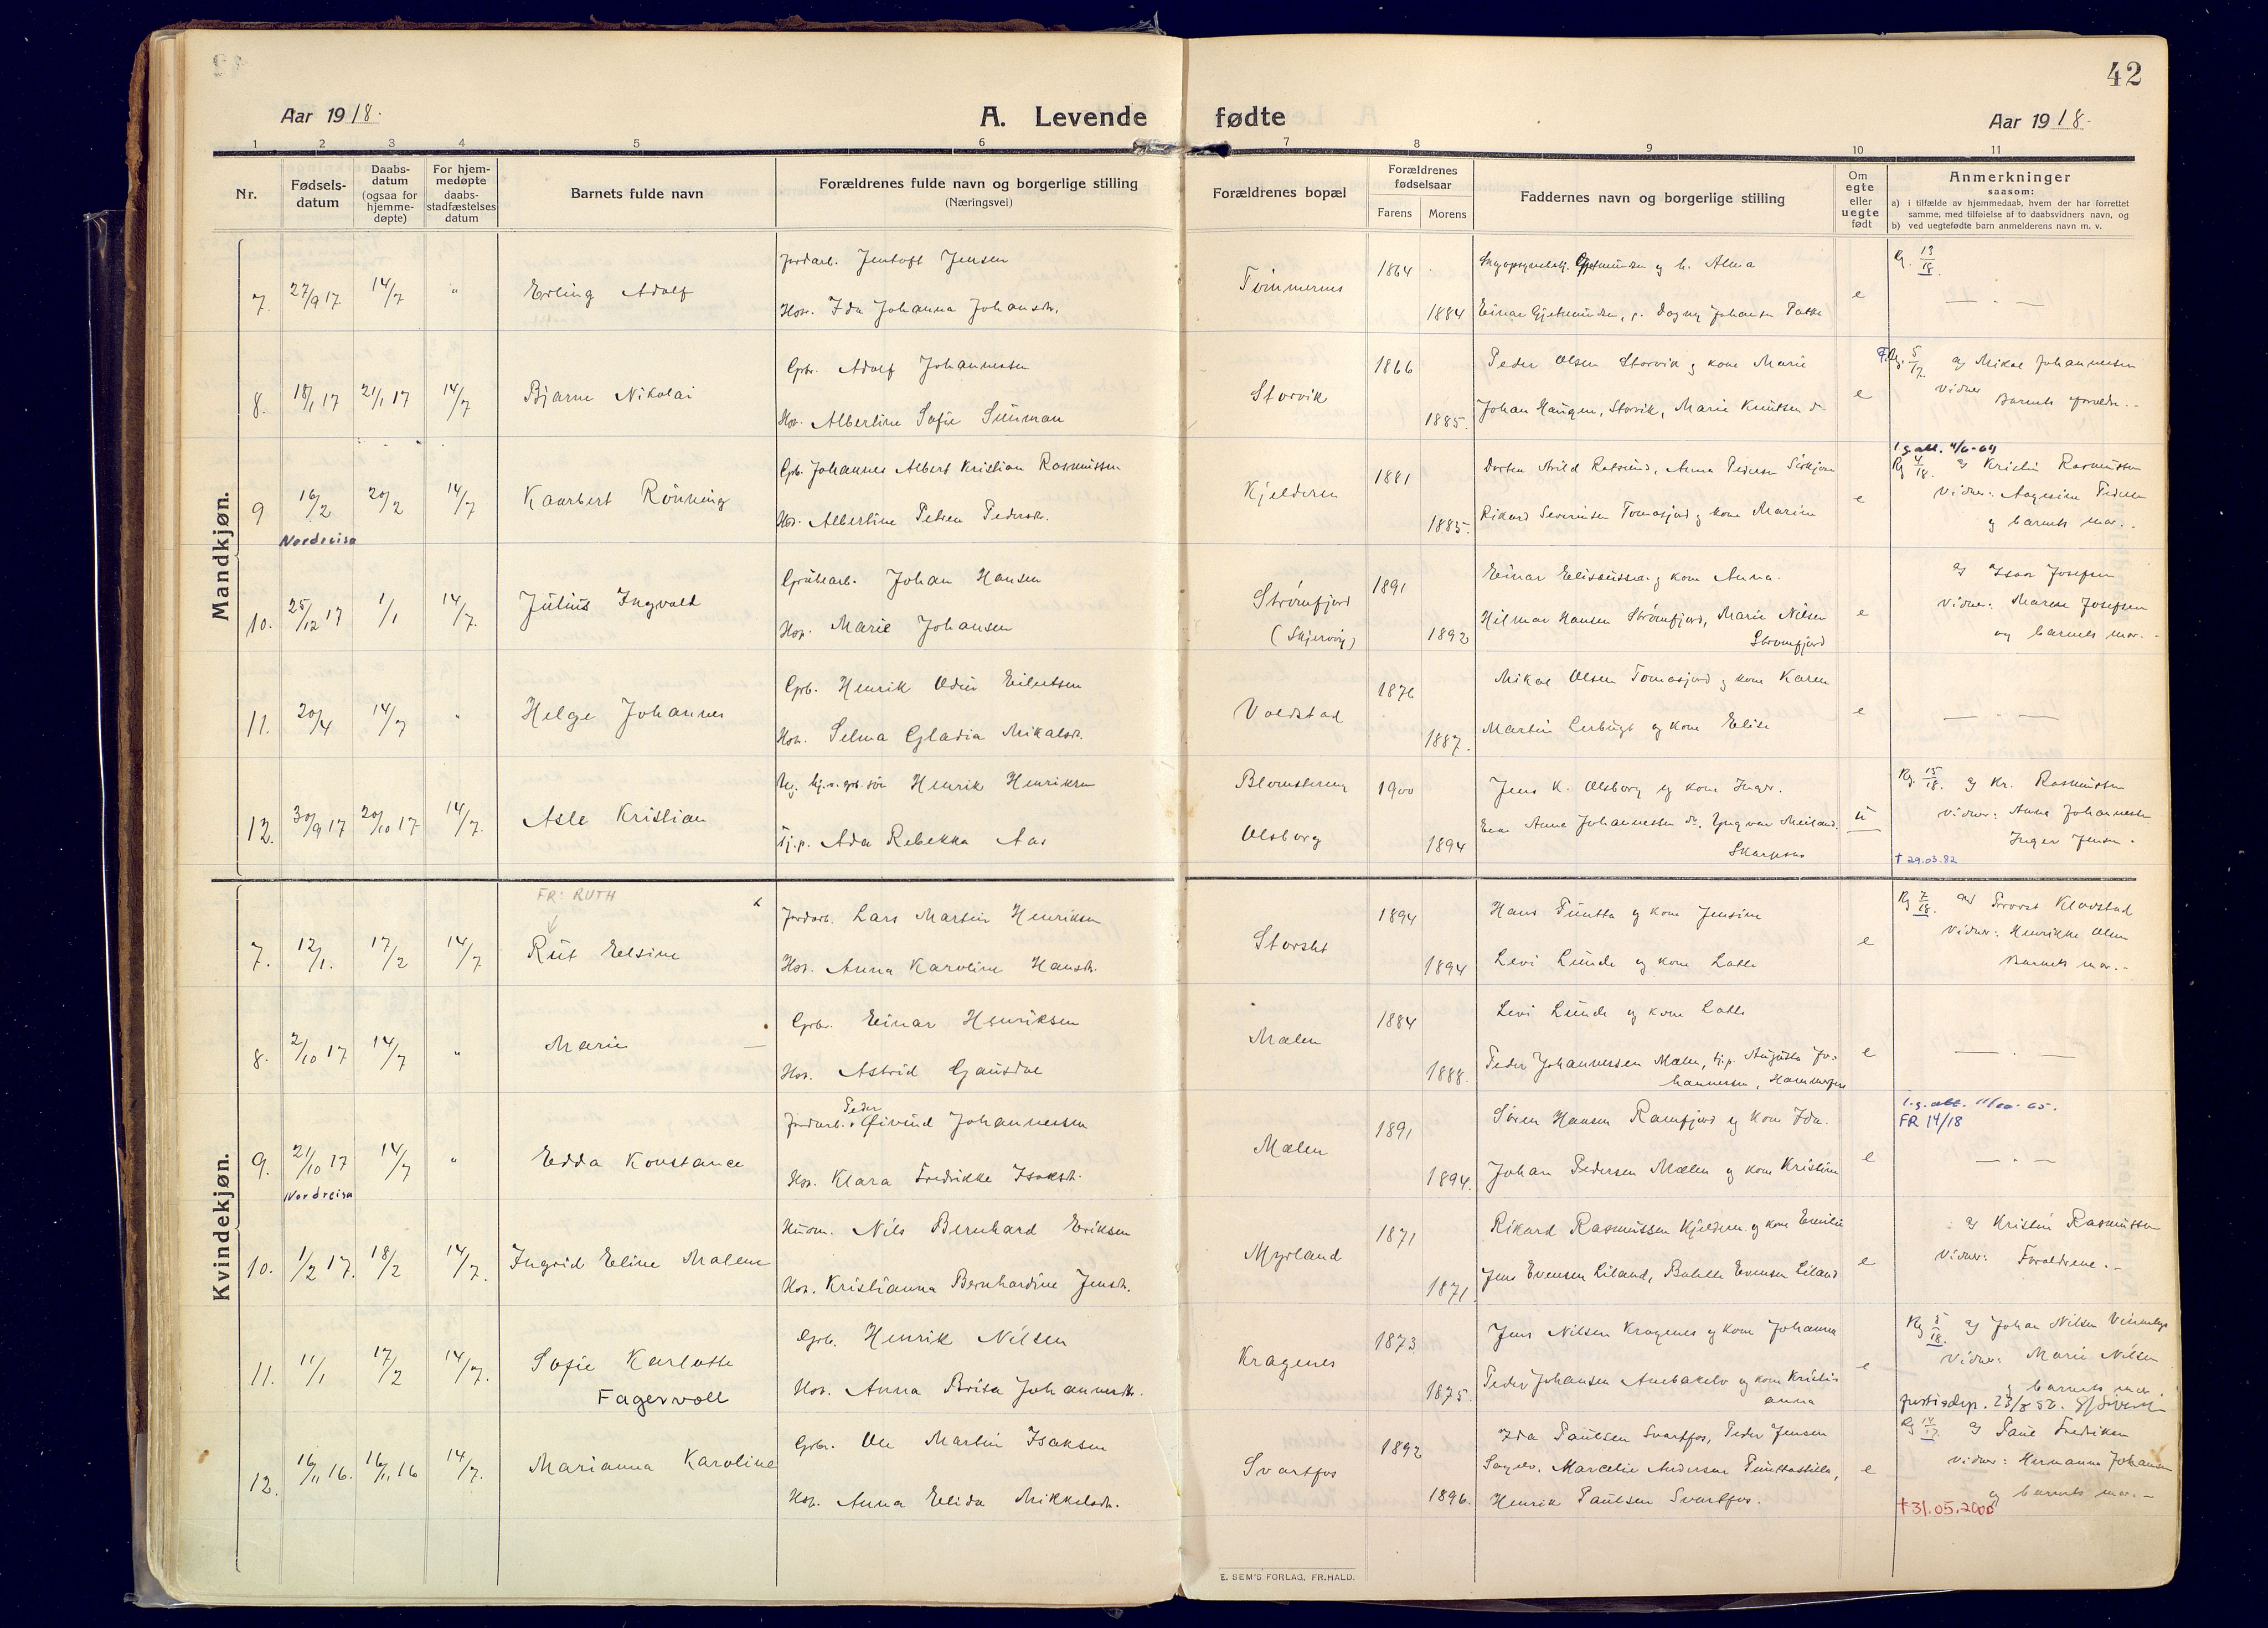 42
Aar 1918.
A. Levende fødte
Aar 1918.
1 2 3 4 5 6 7 8 9 10 11
Nr.
Fødsels-
datum
Daabs-
datum
(ogsaa for
hjemme-
døpte)
For hjem-
medøpte
daabs-
stadfæstelses
datum
Barnets fulde navn
Forældrenes fulde navn og borgerlige stilling
(Næringsvei)
Forældrenes bopæl
Forældrenes
fødselsaar
Farens Morens
Faddernes navn og borgerlige stilling
Om
egte
eller
uegte
født
Anmerkninger
saasom:
a) i tilfælde av hjemmedaab, hvem der har forrettet
samme, med tilføielse af to daabsvidners navn, og
b) ved uegtefødte barn anmelderens navn m. v.
Mandkjøn.
7. 27/9 17 14/7 " Erling Adolf
Jordarb. Jentoft Jensen
Hos. Ida Johanna Johansdt.
Tømmernes 1864 1884
og h. Alma
Einar Gjetmundsen, p. Dagny Johansen
e
Rg. 19/18.
8. 18/1 17 21/1 17 14/7 Bjarne Nikolai
Gbr. Adolf Johannessen
Hos. Albertine Sofie Sunman
Storvik 1866 1885.
Peder Olsen Storvik og kone Marie
Johan Haugen, Storvik, Marie Knutsen
e
5/17. af Mikal Johannessen
Vidner
Barnets forældre.-
9 16/2 20/2 14/7 Kaarbert Rønning
Nordreisa
Gbr. Johannes Albert Kristian Rasmussen
Hos. Albertine Petrea Pedersdt.
Kjelderen 1881 1885.
Anna Pedersen
Rikard Severinsen Tomasjord og kone Marine
e
l.g.att. 4/6-64
Rg 4/18. af Kristin Rasmussen
Vidner: Aagesine Pedersen
og barnets mor.-
10. 25/12 17 1/1 14/7. Julius Ingvald
Grubearb. Johan Hansen
Hos. Marie Johansen
Strømfjord
(Skjervøy)
1891 1892
Einar Elissussen og kone Anna.
Hilmar Hansen Strømfjord, Marie Nilsen
Strømfjord
e
af Isak Josefsen
Vidner: Maren Josefsen
og barnets mor.-
11. 20/4 14/7 " Helge Johannes
Gbr. Henrik Odin Eilertsen
Hos. Selma Gladia Mikalsdt.
Voldstad 1876 1887.
Mikal Olsen Tomasjord og kone Karen
Martin Lerbugt og kone Elise
e
12. 30/9 17 20/10 17 14/7. Asle Kristian
Henrik Henriksen
Tj.p. Ada Rebekka Aas
Blomstereng
Olsborg
1900 1894
Jens K. Olsborg og kone Ingr.
Anna Johannessen Yngvar Meiland.
u
Rg. 15/18. af Kr. Rasmussen
Vidner: Anna Johannessen
Inger Jensen.
† 29.03.82
Kvindekjøn.
FR: RUTH
7. 12/1. 17/2 14/7 Rut Elsine
Jordarb. Lars Martin Henriksen
Hos. Anna Karoline Hansdt.
Storslet 1894 1894
Hans Puntta og kone Jensine
Levi Lunde og kone Lotte
e
Rg 7/18. af Provst Klovstad
Vidner: Henrikke Olsen
Barnets mor.-
8. 2/10 17 14/7 " Marie
Gbr. Einar Henriksen
Hos. Astrid Gausdal
Mælen 1884 1888.
Levi Lunde og kone Lotte
Peder Johannessen Mælen, tj.p. Augusta Jo-
hannessen, Hammerfest
e
9. 21/10 17 14/7 " Edda Konstance
Nordreisa
Peder
Jordarb. Øivind Johannessen
Hos. Klara Fredrikke Isaksdt.
Mælen 1891 1894.
Søren Hansen Ramfjord og kone Ida.
Johan Pedersen Mælen og kone Kristine
e
l.g.att. 11/10-65.
FR 14/18
10. 1/2 17. 18/2 14/7. Ingrid Eline Malene
Husm. Nils Bernhard Eriksen
Hos. Kristianna Bernhardine Jensdt.
Myrland 1871 1871.
Rikard Rasmussen Kjelderen og kone Emilie
Jens Evensen Liland, Bolette Evensen Liland
e
af Kristin Rasmussen
Vidner: Forældrene.-
11. 11/1 17/2 14/7. Sofie Karlotte
Fagervoll
Gbr. Henrik Nilsen
Hos. Anna Brita Johannesdt.
Kragenes 1873 1875.
Jens Nilsen Kragenes og kone Johanna
Peder Johansen og kone Kristi-
anna
e
Rg 8/18. af Johan Nilsen
Vidner: Marie Nilsen
og barnets mor.
Justisdep. 23/8 52.
12. 16/11 16. 16/11 16 14/7. Marianna Karoline
Gbr. Ole Martin Isaksen
Hos. Anna Elida Mikkelsdt.
Svartfos 1892 1896.
Ida Paulsen Svartfos, Peder Jensen
Sagelv, Marcelie Andersen
Henrik Paulsen Svartfos.
e
Rg 14/17. af Paul Fredriksen
Vidner: Hermanna Johansen
og barnets mor.-
†31.05.2000
E. SEM'S FORLAG, FR.HALD.